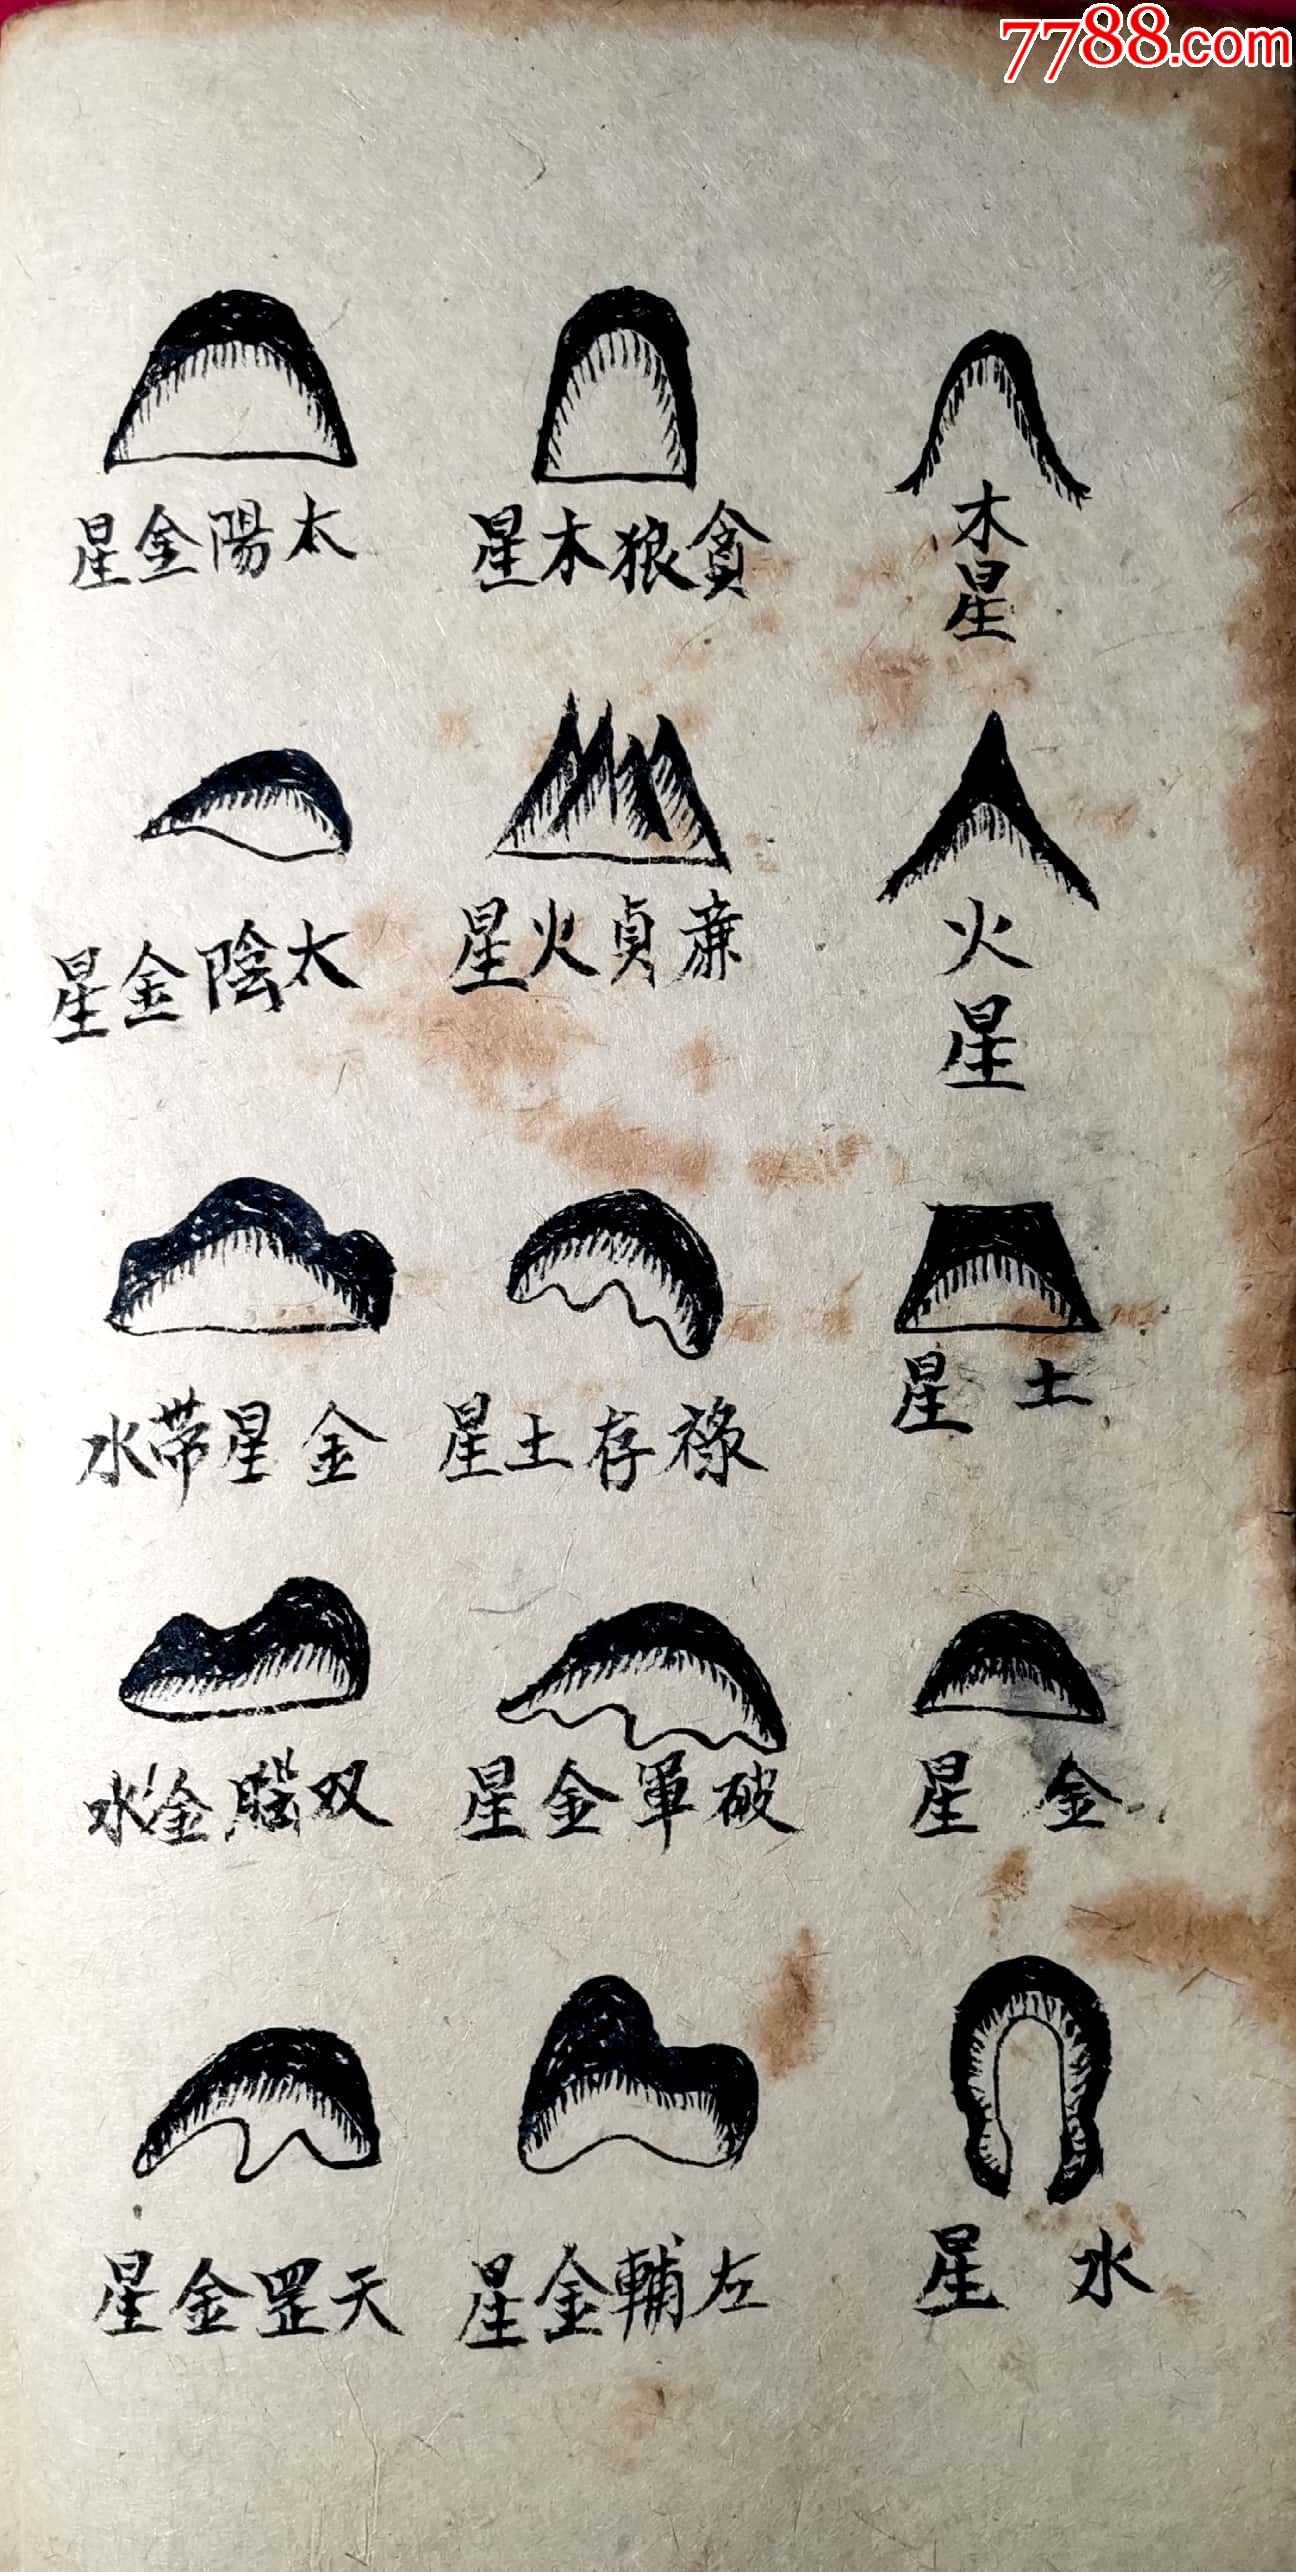 7788.com
木星
火星
土星
金星
水星
貪狼木星
廉貞火星
祿存土星
破軍金星
左輔金星
太陽金星
太陰金星
金星帶水
双腦金水
天罡金星